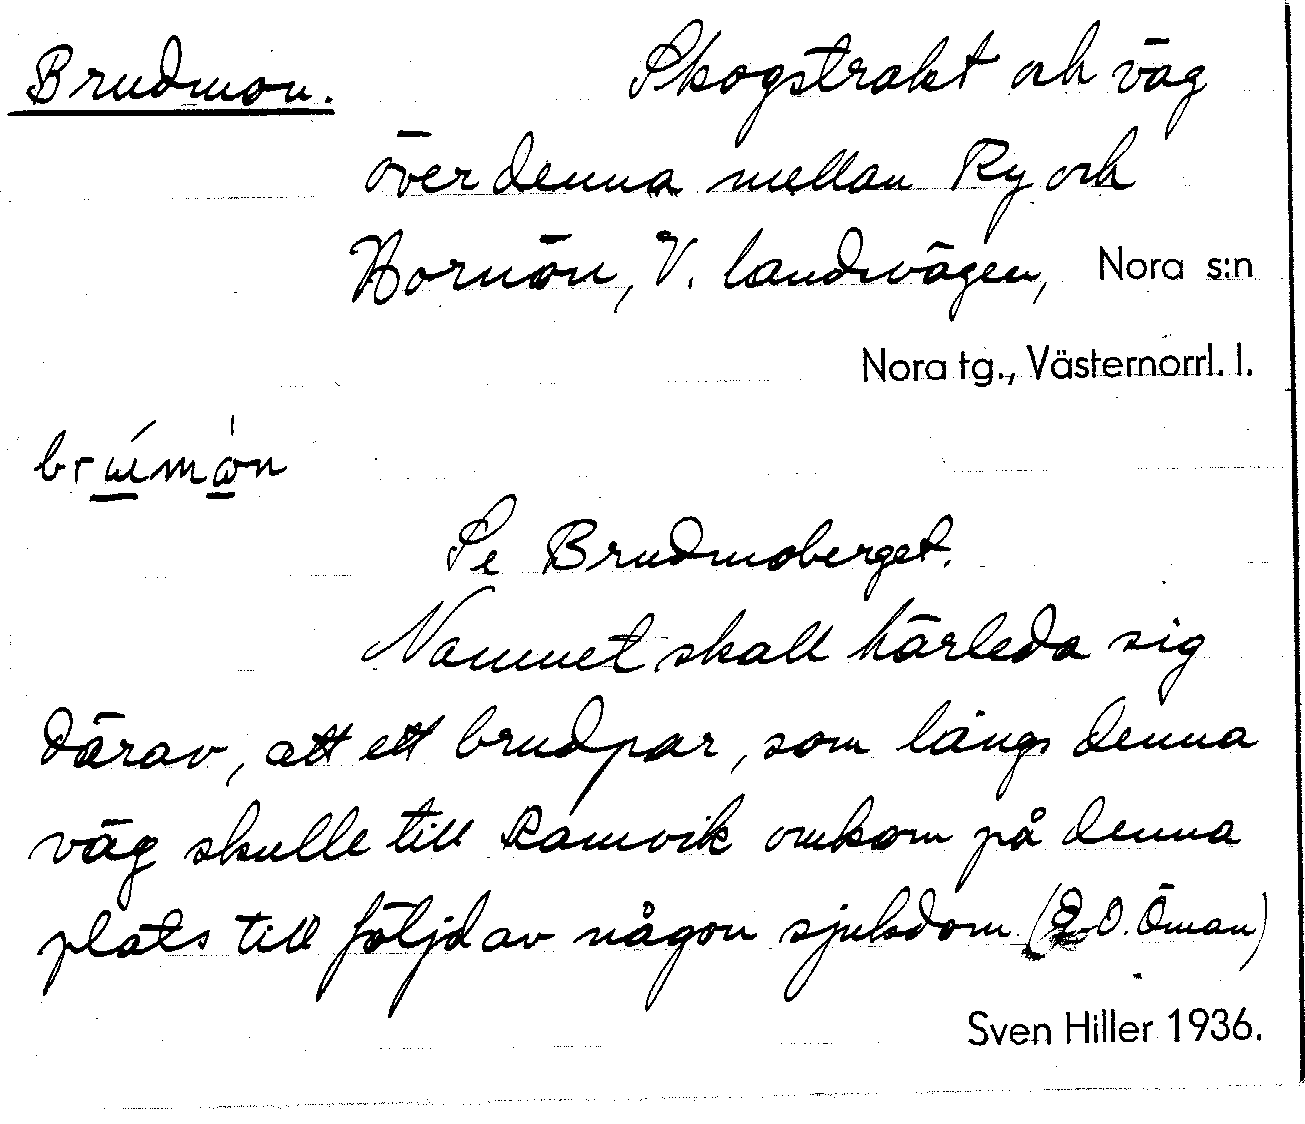 Brudmon. Skogstrakt och väg
över denna mellan Ry och
Hornön, V. landsvägen, Nora s:n
Nora tg., Västernorrl. l.
Se Brudmoberget.
Namnet skall härleda sig
därav, att ett brudpar, som längs denna
väg skulle till Ramvik omkom på denna
plats till följd av någon sjukdom (O. Öman)
Sven Hiller 1936.